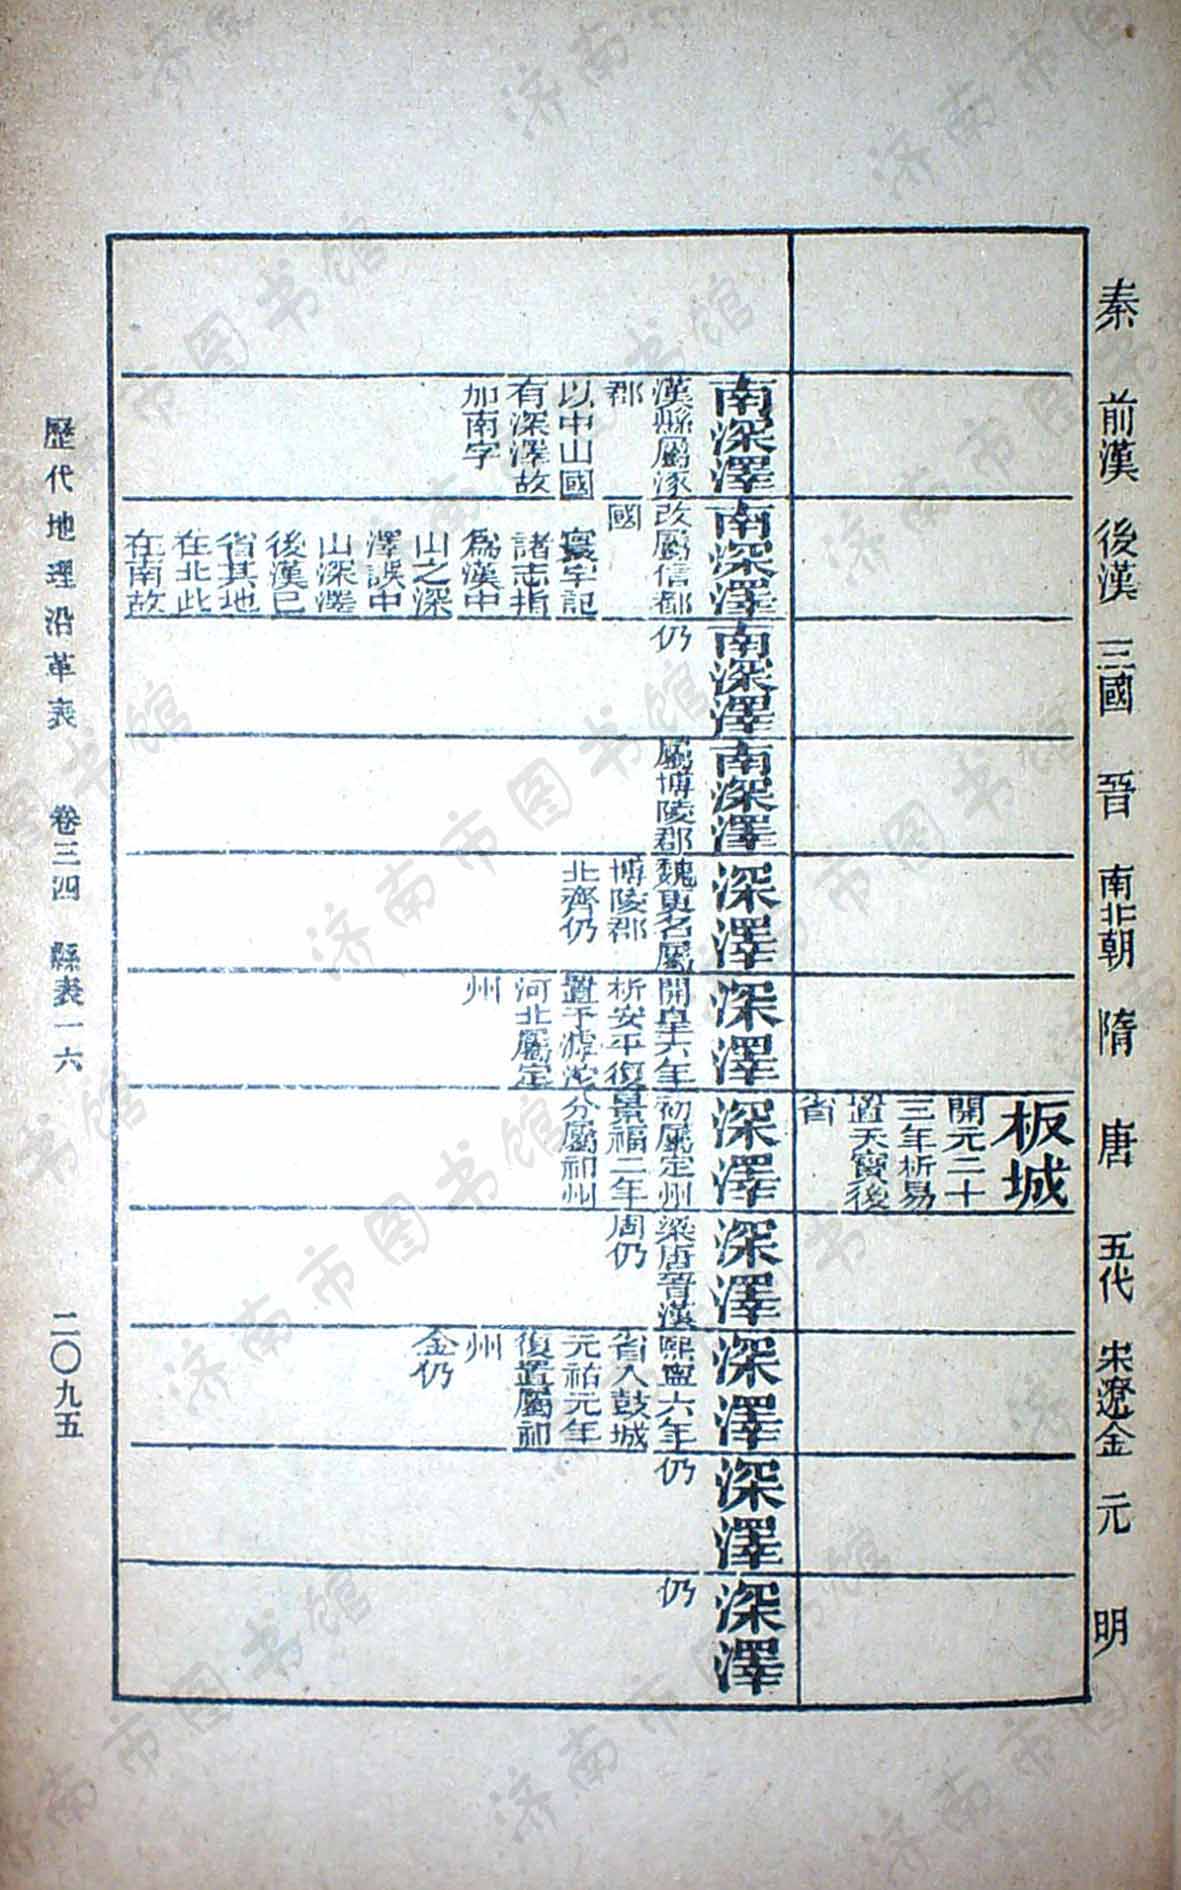 秦
前漢
後漢
三國
晉
南北朝
隋
唐
五代
宋遼金
元
明
板城
開元二十
三年析易
置天寶後
省
南深澤
漢縣屬涿
郡
以中山國
有深澤故
加南字
南深澤
改屬信都
國
寰宇記
諸志指
爲漢中
山之深
澤誤中
山深澤
後漢已
省其地
在北此
在南故
南深澤
仍
南深澤
屬博陵郡
深澤
魏更名屬
博陵郡
北齊仍
深澤
開皇六年
析安平復
置于滹沱
河北屬定
州
深澤
初屬定州
景福二年
分屬祁州
深澤
梁唐晉漢
周仍
深澤
熙寧六年
省入鼓城
元祐元年
復置屬祁
州
金仍
深澤
仍
深澤
仍
歷代地理沿革表 卷三四 縣表一六 二〇九五
济南市图书馆